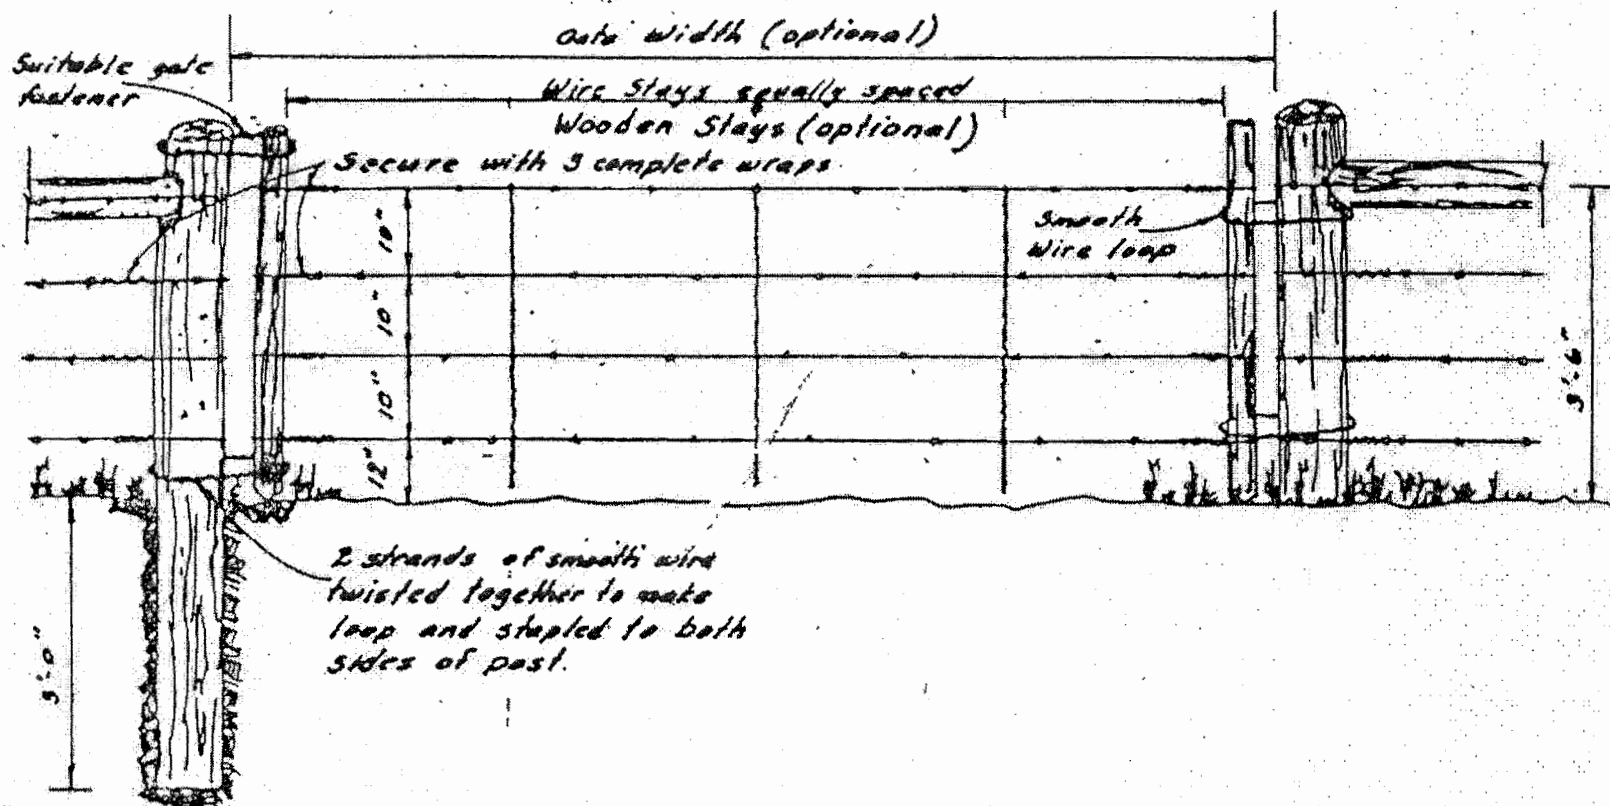 Gate Width (optional)
Suitable gate
fastener
Wire Stays equally spaced
Wooden Stays (optional)
Secure with 3 complete wraps
10"
10"
10"
12"
Smooth
Wire loop
3'-6"
2 strands of smooth wire
twisted together to make
loop and stapled to both
sides of post.
3'-0"